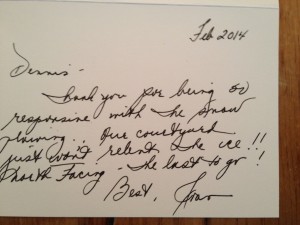 Feb 2014
Dennis -
Thank you for being so
responsive with the snow
plowing... Our courtyard
just won't relent the ice!!
North Facing - the last to go!
Best,